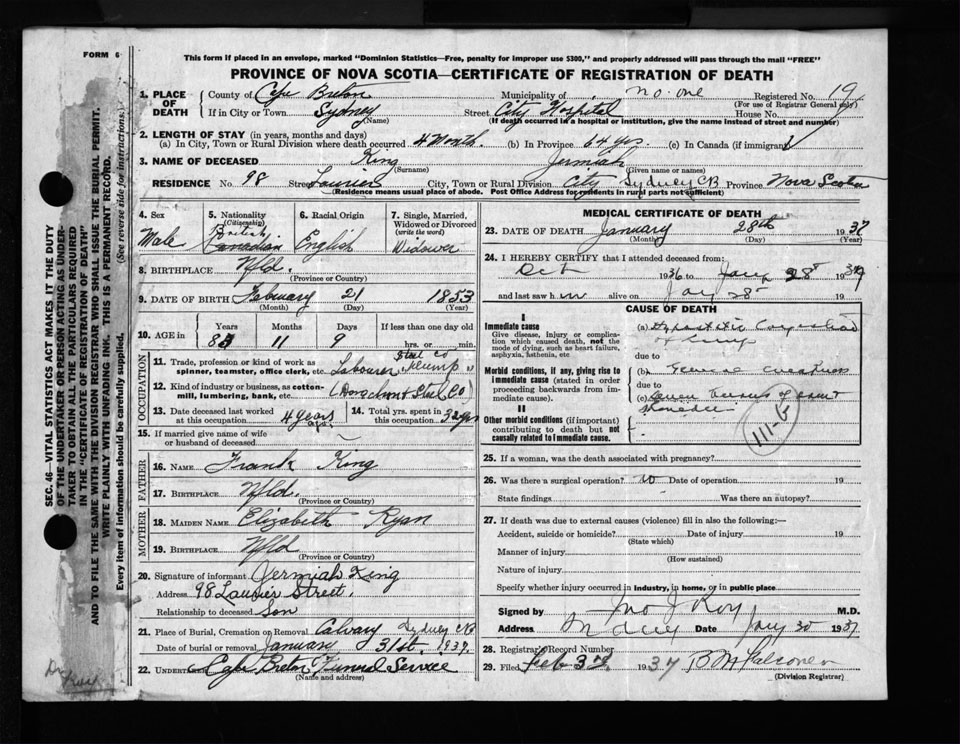 FORM 6
This form if placed in an envelope, marked "Dominion Statistics—Free, penalty for improper use $300," and properly addressed will pass through the mail "FREE"
PROVINCE OF NOVA SCOTIA—CERTIFICATE OF REGISTRATION OF DEATH
1. PLACE OF DEATH
County of Cape Breton Municipality of no. one Registered No. 19
(For use of Registrar General only)
If in City or Town Sydney (Name) Street City Hospital House No.
(If death occurred in a hospital or institution, give the name instead of street and number)
2. LENGTH OF STAY (in years, months and days)
(a) In City, Town or Rural Division where death occurred 4 Month. (b) In Province 64 yrs. (c) In Canada (if immigrant)
3. NAME OF DECEASED King (Surname) Jermiah (Given name or names)
RESIDENCE No. 98 Street Laurier City, Town or Rural Division City Sydney CB Province Nova Scotia
(Residence means usual place of abode. Post Office Address for residents in rural parts not sufficient)
4. Sex Male
5. Nationality (Citizenship) British Canadian
6. Racial Origin English
7. Single, Married, Widowed or Divorced (write the word) Widower
8. BIRTHPLACE Nfld. (Province or Country)
9. DATE OF BIRTH February (Month) 21 (Day) 1853 (Year)
10. AGE in Years 83 Months 11 Days 9 If less than one day old hrs. or min.
OCCUPATION
11. Trade, profession or kind of work as spinner, teamster, office clerk, etc. Labourer Steel Co
12. Kind of industry or business, as cotton-mill, lumbering, bank, etc. Steel Co
13. Date deceased last worked at this occupation 4 years ago.
14. Total yrs. spent in this occupation 32 yrs
15. If married give name of wife or husband of deceased
FATHER
16. NAME Frank King
17. BIRTHPLACE Nfld. (Province or Country)
MOTHER
18. MAIDEN NAME Elizabeth Ryan
19. BIRTHPLACE Nfld (Province or Country)
20. Signature of informant Jermiah King
Address 98 Laurier Street.
Relationship to deceased Son
21. Place of Burial, Cremation or Removal Calvary Sydney CB
Date of burial or removal January 31st. 1937.
22. UNDERTAKER Cape Breton Funeral Service
(Name and address)
MEDICAL CERTIFICATE OF DEATH
23. DATE OF DEATH January (Month) 28th (Day) 1937 (Year)
24. I HEREBY CERTIFY that I attended deceased from:
Oct 1936 to Jany 28th 1937
and last saw h im alive on Jany 28th 19
CAUSE OF DEATH
I
Immediate cause
Give disease, injury or complication which caused death, not the mode of dying, such as heart failure, asphyxia, asthenia, etc
(a) Hypostatic Congestion of Lungs
due to
Morbid conditions, if any, giving rise to immediate cause (stated in order proceeding backwards from immediate cause).
(b) General weakness
due to
(c)
II
Other morbid conditions (if important) contributing to death but not causally related to immediate cause.
111-B
25. If a woman, was the death associated with pregnancy?
26. Was there a surgical operation? No Date of operation 19
State findings Was there an autopsy?
27. If death was due to external causes (violence) fill in also the following:—
Accident, suicide or homicide? (State which) Date of injury 19
Manner of injury (How sustained)
Nature of injury
Specify whether injury occurred in industry, in home, or in public place
Signed by Jno J Roy M.D.
Address Sydney Date Jany 30 1937
28. Registrar's Record Number
29. Filed Feb 3rd 1937
(Division Registrar)
SEC. 46—VITAL STATISTICS ACT MAKES IT THE DUTY
OF THE UNDERTAKER OR PERSON ACTING AS UNDERTAKER TO OBTAIN ALL THE PARTICULARS REQUIRED
IN THE "CERTIFICATE OF REGISTRATION OF DEATH"
AND TO FILE THE SAME WITH THE DIVISION REGISTRAR WHO SHALL ISSUE THE BURIAL PERMIT.
WRITE PLAINLY WITH UNFADING INK. THIS IS A PERMANENT RECORD.
Every item of information should be carefully supplied. (See reverse side for instructions)
Dr Roy